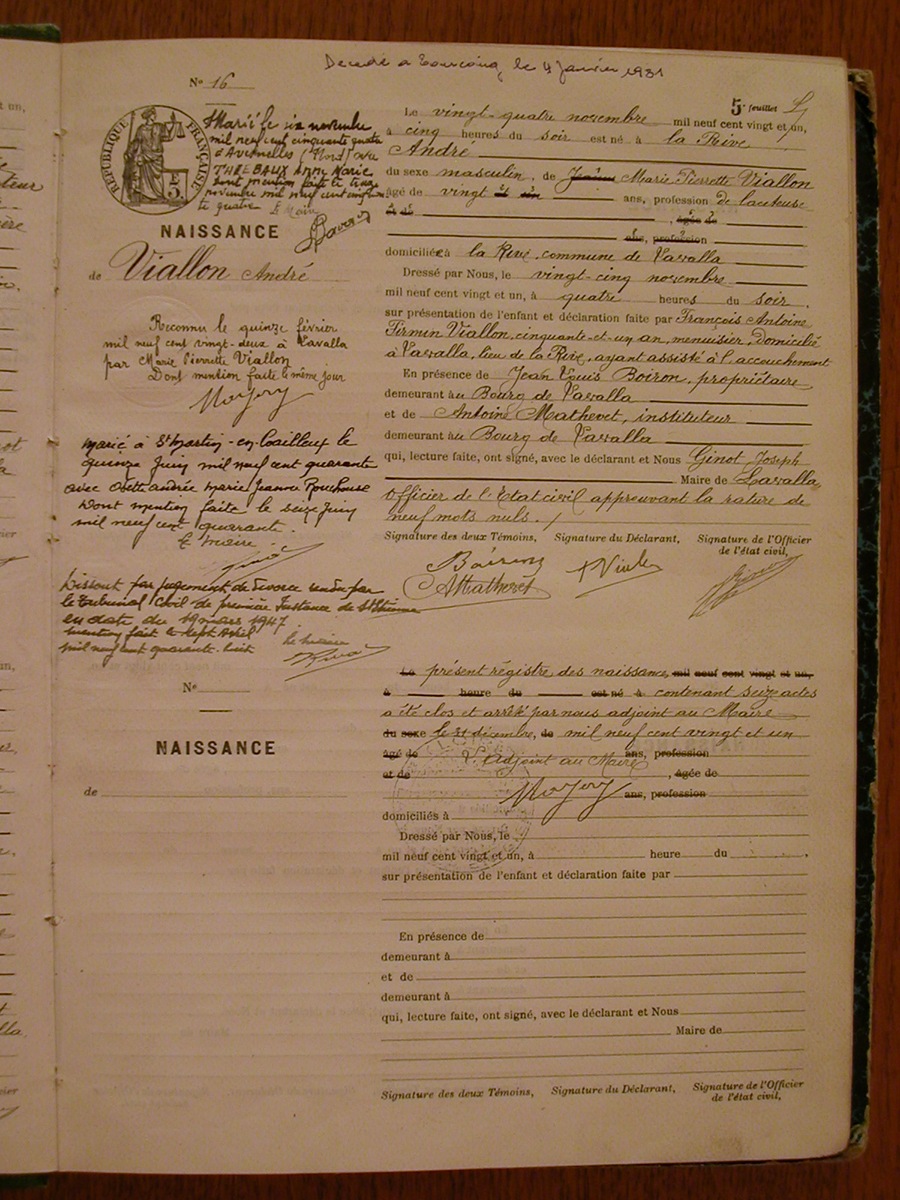 Décédé à Tourcoing le 4 Janvier 1981
No 16
5e feuillet
RÉPUBLIQUE FRANÇAISE
Marié le six novembre
mil neuf cent cinquante quatre
d'Avesnelles (Nord) avec
THEBAUX Ann Marie
dont mention faite le treize
novembre mil neuf cent cinquan-
te quatre le Maire
NAISSANCE
de Viallon André
Reconnu le quinze février
mil neuf cent vingt-deux à Lavalla
par Marie Pierrette Viallon
Dont mention faite le même jour
marié à St Martin-en-Coailleux le
quinze Juin mil neuf cent quarante
avec Odette andrée Marie Jeanne Rouchouse
Dont mention faite le seize Juin
mil neuf cent quarante.
le maire
Dissout par jugement de divorce rendu par
le tribunal Civil de première Instance de St Etienne
en date du 19 mars 1947.
mention fait le sept Avril
mil neuf cent quarante-huit le maire
Le vingt-quatre novembre mil neuf cent vingt et un,
à cinq heures du soir est né à la Rive
André
du sexe masculin, de Marie Pierrette Viallon
âgé de vingt et un ans, profession De laceteuse
et de , âgée de
ans, profession
domiciliée à la Rive, commune de Lavalla
Dressé par Nous, le vingt-cinq novembre
mil neuf cent vingt et un, à quatre heures du soir.
sur présentation de l'enfant et déclaration faite par François Antoine
Firmin Viallon, cinquante-et-un an, menuisier, domicilié
à Lavalla, lieu de la Rive, ayant assisté à l'accouchement
En présence de Jean Louis Boiron, propriétaire
demeurant au Bourg de Lavalla
et de Antoine Mathevet, instituteur
demeurant au Bourg de Lavalla
qui, lecture faite, ont signé, avec le déclarant et Nous Ginot Joseph
Maire de Lavalla,
officier de l'Etat civil approuvant la rature de
neuf mots nuls.
Signature des deux Témoins, Signature du Déclarant, Signature de l'Officier
de l'état civil,
Boiron
AMathevet
No
NAISSANCE
de
Le présent régistre des naissance mil neuf cent vingt et un,
à heure du est né à contenant seize actes
a été clos et arrêté par nous adjoint au Maire
du sexe le 31 décembre, de mil neuf cent vingt et un
âgé de L'adjoint au Maire ans, profession
et de , âgée de
ans, profession
domiciliés à
Dressé par Nous, le
mil neuf cent vingt et un, à heure du .
sur présentation de l'enfant et déclaration faite par
En présence de
demeurant à
et de
demeurant à
qui, lecture faite, ont signé, avec le déclarant et Nous
Maire de
Signature des deux Témoins, Signature du Déclarant, Signature de l'Officier
de l'état civil,